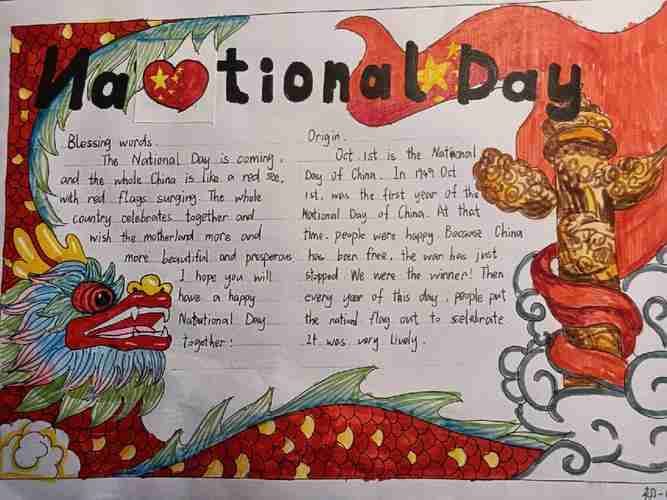 National Day
Blessing words.
The National Day is coming,
and the whole China is like a red sea,
with red flags surging. The whole
country celebrates together and
wish the motherland more and
more beautiful and prosperous
I hope you will
have a happy
Natoutional Day
together!
Origin.
Oct. 1st is the National
Day of China. In 1949 Oct
1st. was the first year of the
National Day of China. At that
time. people were happy Because China
has been free, the war has just
stopped We were the winner! Then
every year of this day, people put
the national flag out to selebrate
It was very lively.